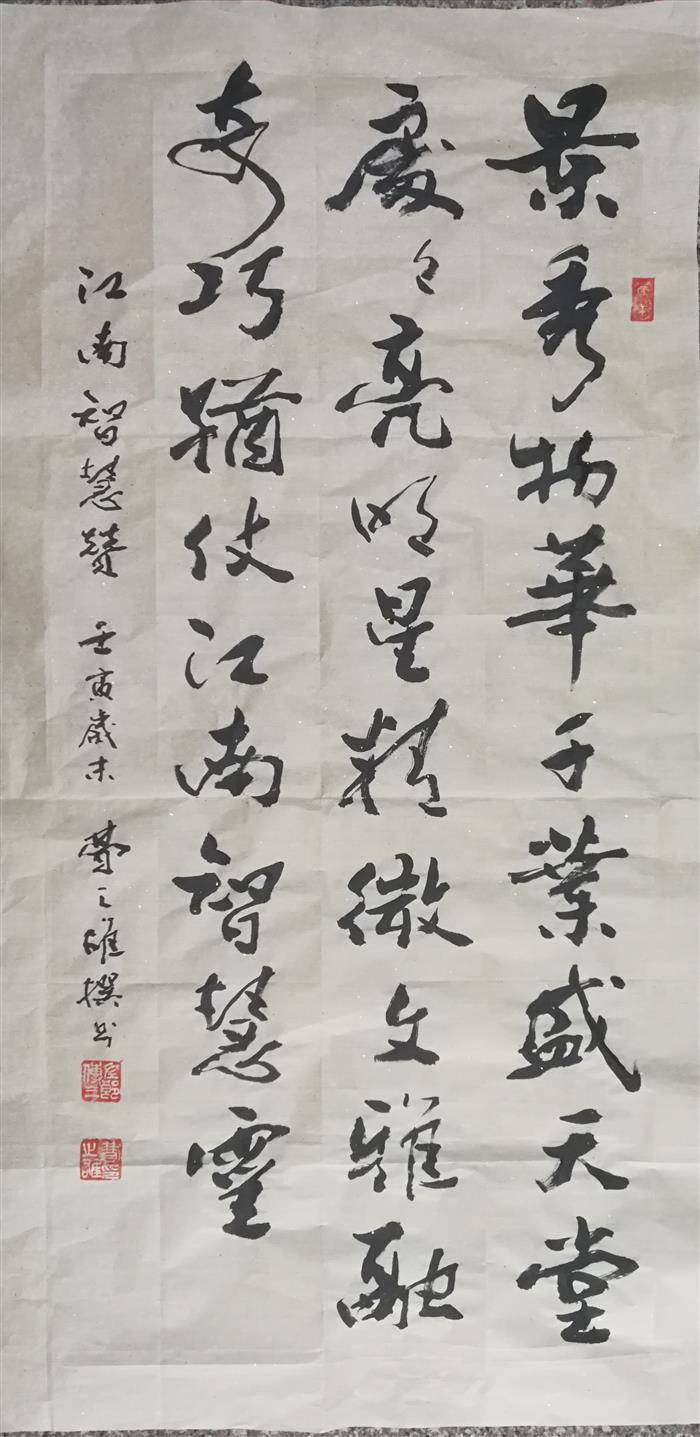 景秀物華千業盛天堂
處々亮明星精微文雅融
奇巧猶仗江南智慧靈
江南智慧贊 壬寅歲末 費之雄撰書